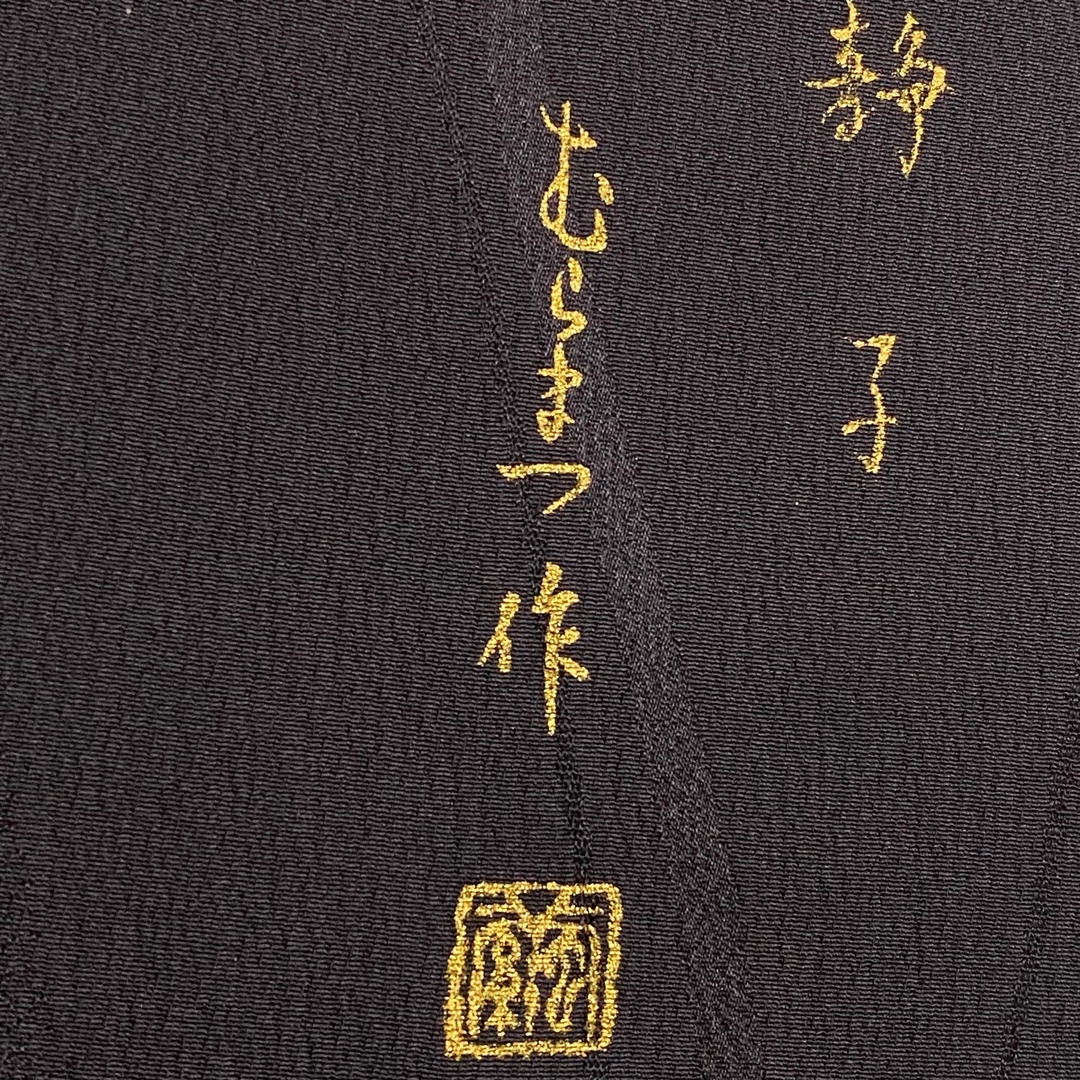 静子
むらまつ作